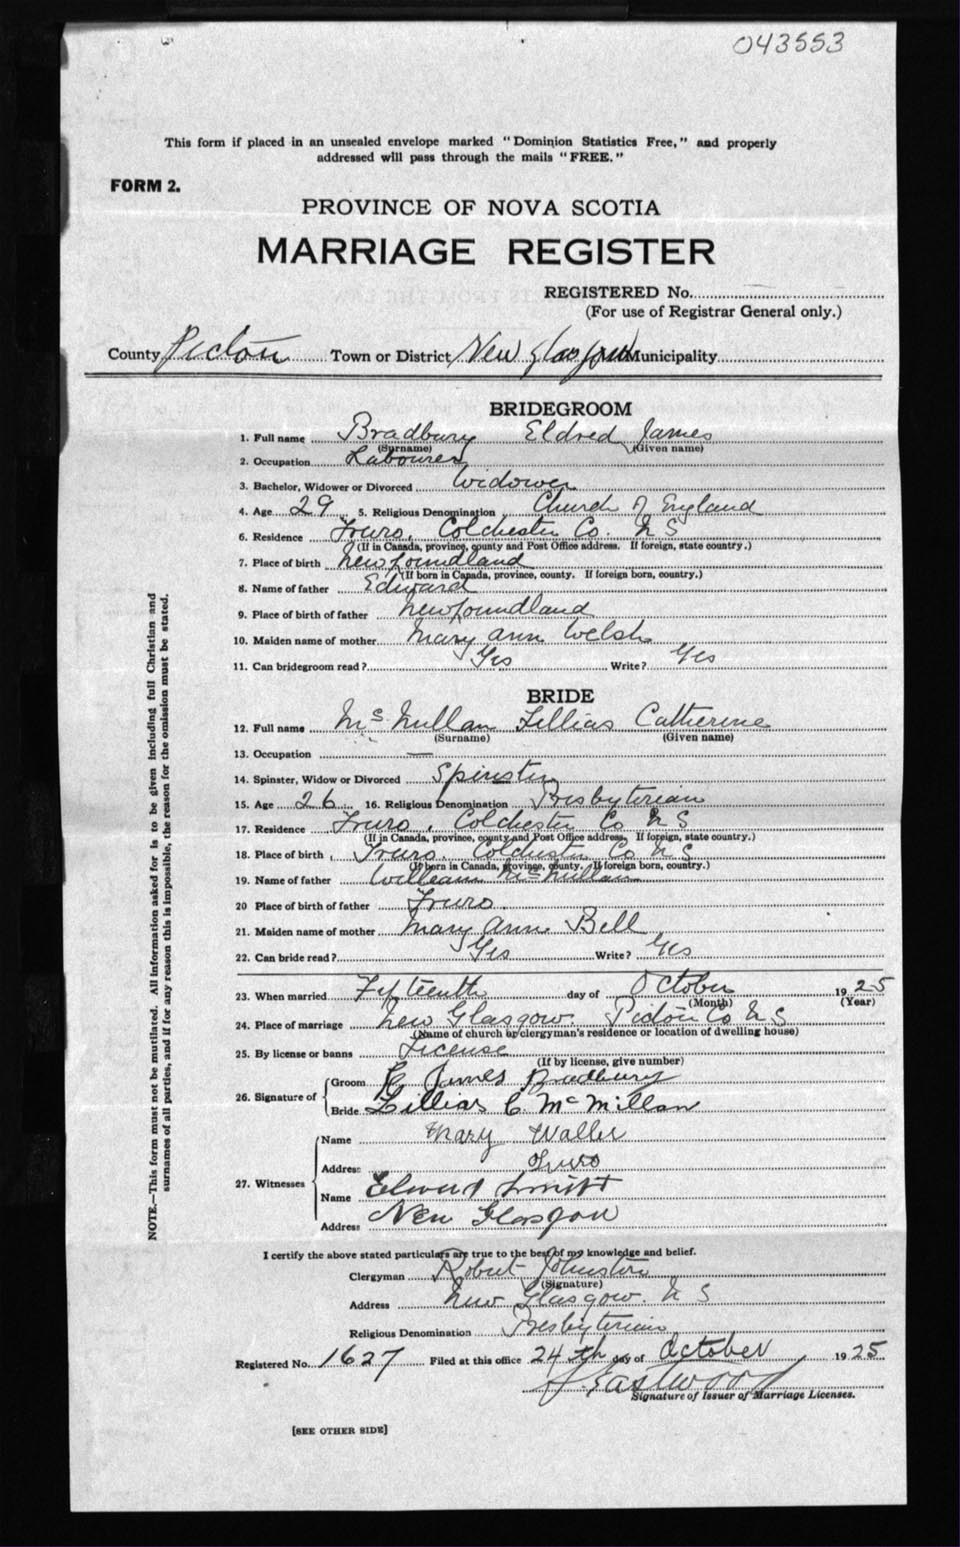 043553
This form if placed in an unsealed envelope marked "Dominion Statistics Free," and properly
addressed will pass through the mails "FREE."
FORM 2.
PROVINCE OF NOVA SCOTIA
MARRIAGE REGISTER
REGISTERED No.
(For use of Registrar General only.)
County Pictou Town or District New Glasgow Municipality
BRIDEGROOM
1. Full name Bradbury Eldred James
(Surname) (Given name)
2. Occupation Labourer
3. Bachelor, Widower or Divorced Widower
4. Age 29 5. Religious Denomination Church of England
6. Residence Truro, Colchester Co. N S
(If in Canada, province, county and Post Office address. If foreign, state country.)
7. Place of birth Newfoundland
(If born in Canada, province, county. If foreign born, country.)
8. Name of father Edward
9. Place of birth of father Newfoundland
10. Maiden name of mother Mary Ann Welsh
11. Can bridegroom read? Yes Write? Yes
BRIDE
12. Full name McMullan Lillias Catherine
(Surname) (Given name)
13. Occupation —
14. Spinster, Widow or Divorced Spinster
15. Age 26 16. Religious Denomination Presbyterian
17. Residence Truro, Colchester Co N S
(If in Canada, province, county and Post Office address. If foreign, state country.)
18. Place of birth Truro, Colchester Co N S
(If born in Canada, province, county. If foreign born, country.)
19. Name of father William McMullan
20 Place of birth of father Truro.
21. Maiden name of mother Mary Ann Bell
22. Can bride read? Yes Write? Yes
23. When married Fifteenth day of October 1925
(Month) (Year)
24. Place of marriage New Glasgow. Pictou Co N S
(Name of church or clergyman's residence or location of dwelling house)
25. By license or banns License
(If by license, give number)
26. Signature of Groom E James Bradbury
Bride Lillias C. McMillan
27. Witnesses
Name Mary Waller
Address Truro
Name Smith
Address New Glasgow
I certify the above stated particulars are true to the best of my knowledge and belief.
Clergyman Robert Johnston
(Signature)
Address New Glasgow. N S
Religious Denomination Presbyterian
Registered No. 1627 Filed at this office 24th day of October 1925
Eastwood
Signature of Issuer of Marriage Licenses.
[SEE OTHER SIDE]
NOTE.—This form must not be mutilated. All information asked for is to be given including full Christian and
surnames of all parties, and if for any reason this is impossible, the reason for the omission must be stated.